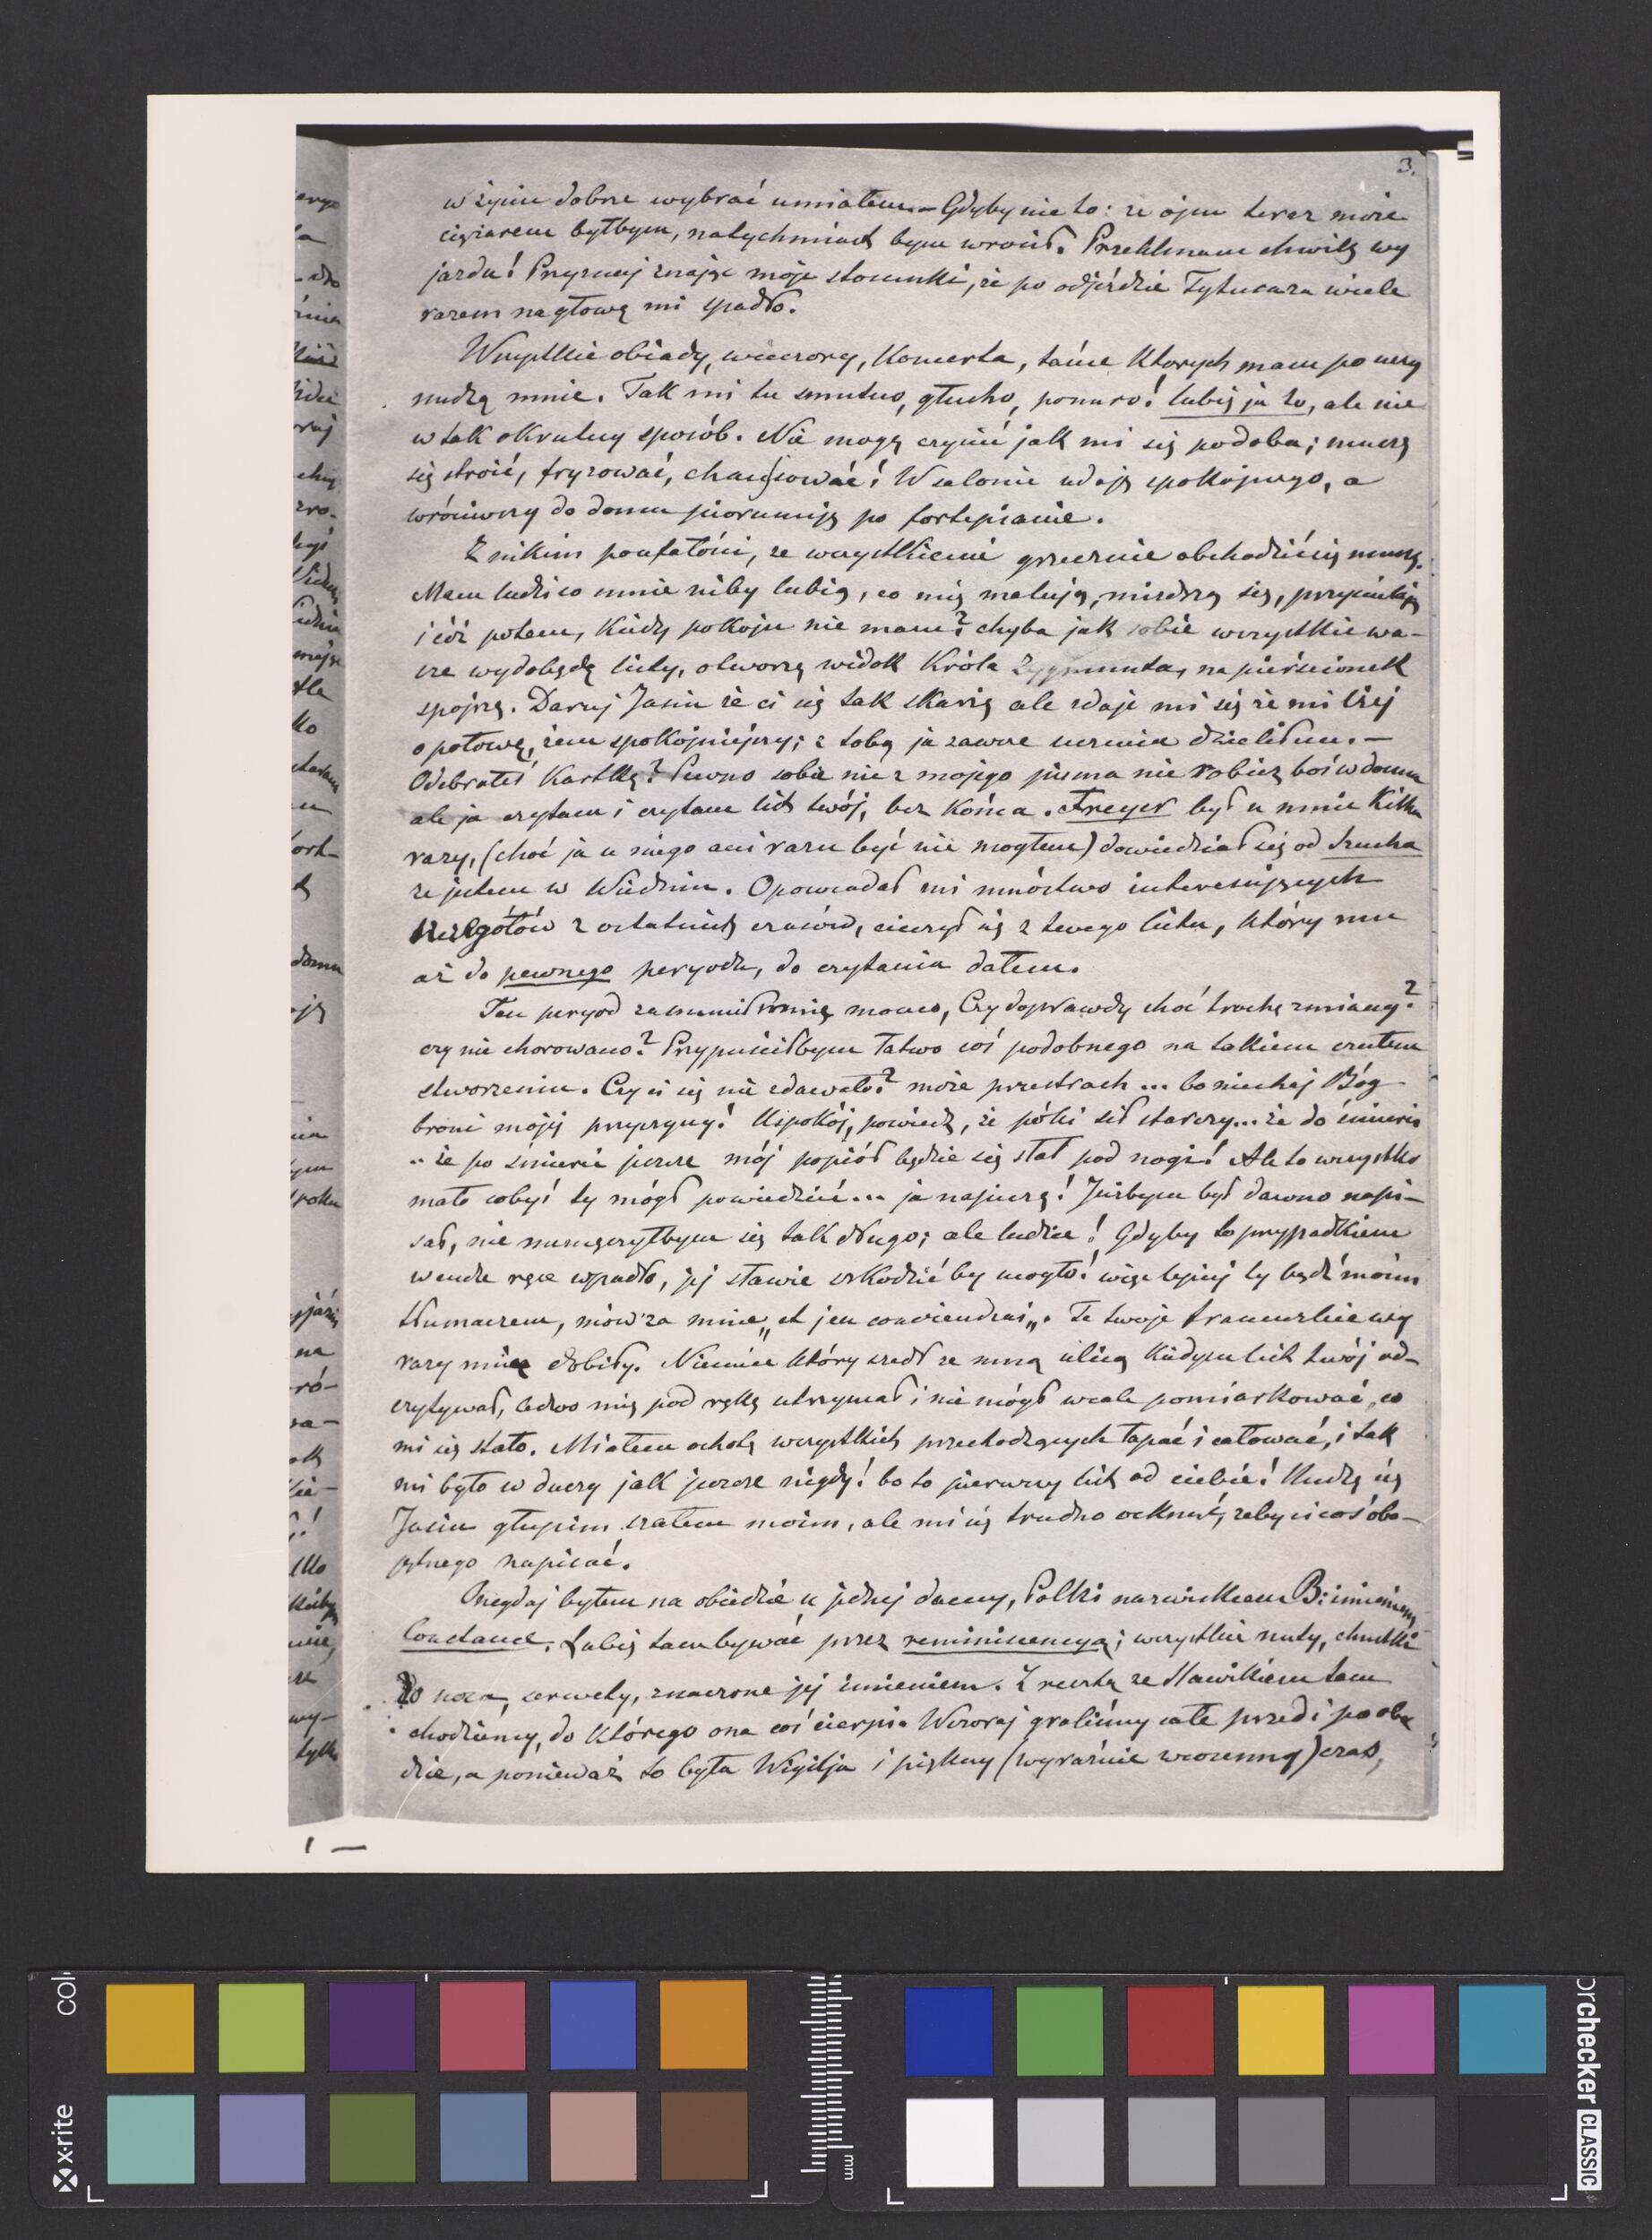 3.
w życiu dobrze wybrać umiałem. – Gdyby nie to: że ojcu teraz może
ciężarem byłbym, natychmiast bym wrócił. Przeklinam chwilę wy
jazdu! Przyznaj znając moje stosunki, że po odjeździe Tytusa za wiele
razem na głowę mi spadło.
Wszystkie obiady, wieczory, Koncerta, tańce których mam po uszy
nudzą mnie. Tak mi tu smutno, głucho, ponuro! lubię ja to, ale nie
w tak okrutny sposób. Nie mogę czynić jak mi się podoba; muszę
się stroić, fryzować, chaussować! W salonie udaję spokojnego, a
wróciwszy do domu piorunuję po fortepianie.
Z nikim poufałości, ze wszystkiemi grzecznie obchodzić się muszę.
Mam ludzi co mnie niby lubią, co mię malują, mizdrzą się, przymilają
i cóż potem, kiedy pokoju nie mam? chyba jak sobie wszystkie wa–
sze wydobędę listy, otworzę widok Króla Zygmunta, na pierścionek
spojrzę. Daruj Jasiu że ci się tak skarżę ale zdaje mi się że mi lżej
o połowę, żem spokojniejszy; z tobą ja zawsze uczucia dzieliłem. –
Odebrałeś Kartkę? Pewno sobie nic z mojego pisma nie robisz boś w domu
ale ja czytam i czytam list twój, bez końca. Freyer był u mnie kilka
razy, (choć ja u niego ani razu być nie mogłem) dowiedział się od Szucha
że jestem w Wiedniu. Opowiadał mi mnóstwo interesujących
szczegółów z ostatnich czasów, cieszył się z twego listu, który mu
aż do pewnego peryodu, do czytania dałem.
Ten peryod zasmucił mnię mocno, Czy doprawdy choć trochę zmiany?
czy nie chorowano? Przypuściłbym łatwo coś podobnego na takiem czułem
stworzeniu. Czy ci się nie zdawało? może przestrach ... bo niechaj Bóg
broni mojej przyczyny! Uspokój, powiedz, że póki sił starczy... że do śmierci
.. że po śmierci jeszcze mój popiół będzie się słał pod nogi! Ale to wszystko
mało cobyś ty mógł powiedzieć... ja napiszę! Jużbym był dawno napi–
sał, nie męczyłbym się tak długo; ale ludzie! Gdyby to przypadkiem
w cudze ręce wpadło, jej sławie szkodzić by mogło! więc lepiej ty bądź moim
tłumaczem, mów za mnie „et j'en conviendrai„. Te twoje francuzkie wy
razy mnię dobiły. Niemiec który szedł ze mną ulicą kiedym list twój od–
czytywał, ledwo mię pod rękę utrzymał i nie mógł wcale pomiarkować, co
mi się stało. Miałem ochotę wszystkich przechodzących łapać i całować, i tak
mi było w duszy jak jeszcze nigdy! bo to pierwszy list od ciebie! Nudzę cię
Jasiu głupim szałem moim, ale mi się trudno ocknąć, żeby ci coś obo–
jętnego napisać.
Onegdaj byłem na obiedzie u jednej damy, Polki nazwiskiem B: imieniem
Constance. Lubię tam bywać przez reminiscencyą; wszystkie nuty, chustki
do nosa, serwety, znaczone jej imieniem. Zresztą ze Slawikiem tam
chodziemy, do którego ona coś cierpi. Wczoraj graliśmy całe przed i po obie
dzie, a ponieważ to była Wigilja i piękny (wyraźnie wiosenny) czas,